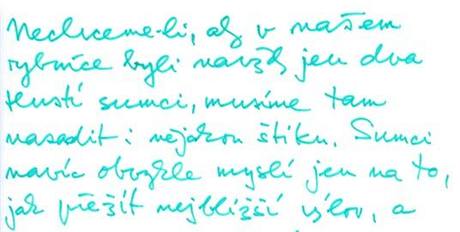 Nechceme-li, aby v našem
rybníce byli navždy jen dva
tlustí sumci, musíme tam
nasadit i nějakou štiku. Sumci
navíc obvykle myslí jen na to,
jak přežít nejbližší výlov, a